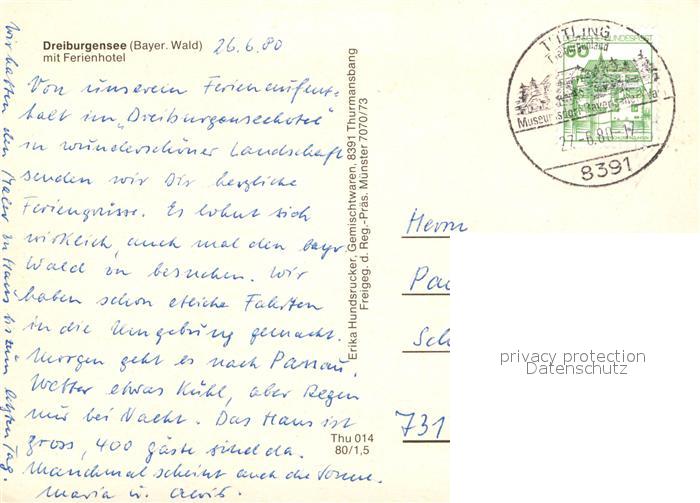 Dreiburgensee (Bayer. Wald)
mit Ferienhotel
26.6.80
Von unserem Ferienaufent-
halt im "Dreiburgenseehotel"
in wunderschöner Landschaft
senden wir Dir herzliche
Feriengrüsse. Es lohnt sich
wirklich, auch mal den bayr.
Wald zu besuchen. Wir
haben schon etliche Fahrten
in die Umgebung gemacht.
Morgen geht es nach Passau.
Wetter etwas kühl, aber Regen
nur bei Nacht. Das Haus ist
gross, 400 Gäste sind da.
Manchmal scheint auch die Sonne.
Maria u.
Wir hatten den Maler im Haus bis zum letzten Tag.
Erika Hundsrucker, Gemischtwaren, 8391 Thurmansbang
Freigeg. d. Reg.-Präs. Münster 7070/73
Thu 014
80/1,5
TITTLING
Museumsdorf Bayer.
27.-6.80-17
8391
60
BUNDESPOST
Herrn
731
privacy protection
Datenschutz